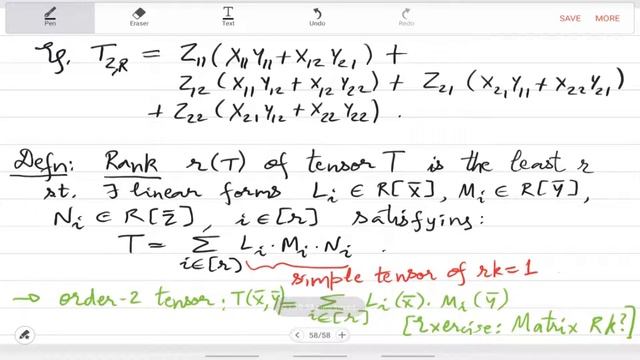 Pen Eraser Text Undo Redo SAVE MORE
Eg. T₂,R = Z₁₁(X₁₁Y₁₁+X₁₂Y₂₁) +
Z₁₂(X₁₁Y₁₂+X₁₂Y₂₂) + Z₂₁(X₂₁Y₁₁+X₂₂Y₂₁)
+ Z₂₂(X₂₁Y₁₂+X₂₂Y₂₂).
Defn: Rank r(T) of tensor T is the least r
st. ∃ linear forms Lᵢ ∈ R[x̄], Mᵢ ∈ R[ȳ],
Nᵢ ∈ R[z̄], i∈[r] satisfying:
T = Σ Lᵢ·Mᵢ·Nᵢ .
i∈[r]
simple tensor of rk=1
→ order-2 tensor: T(x̄,ȳ) = Σ Lᵢ(x̄)·Mᵢ(ȳ)
i∈[r]
[Exercise: Matrix Rk?]
< 58/58 >